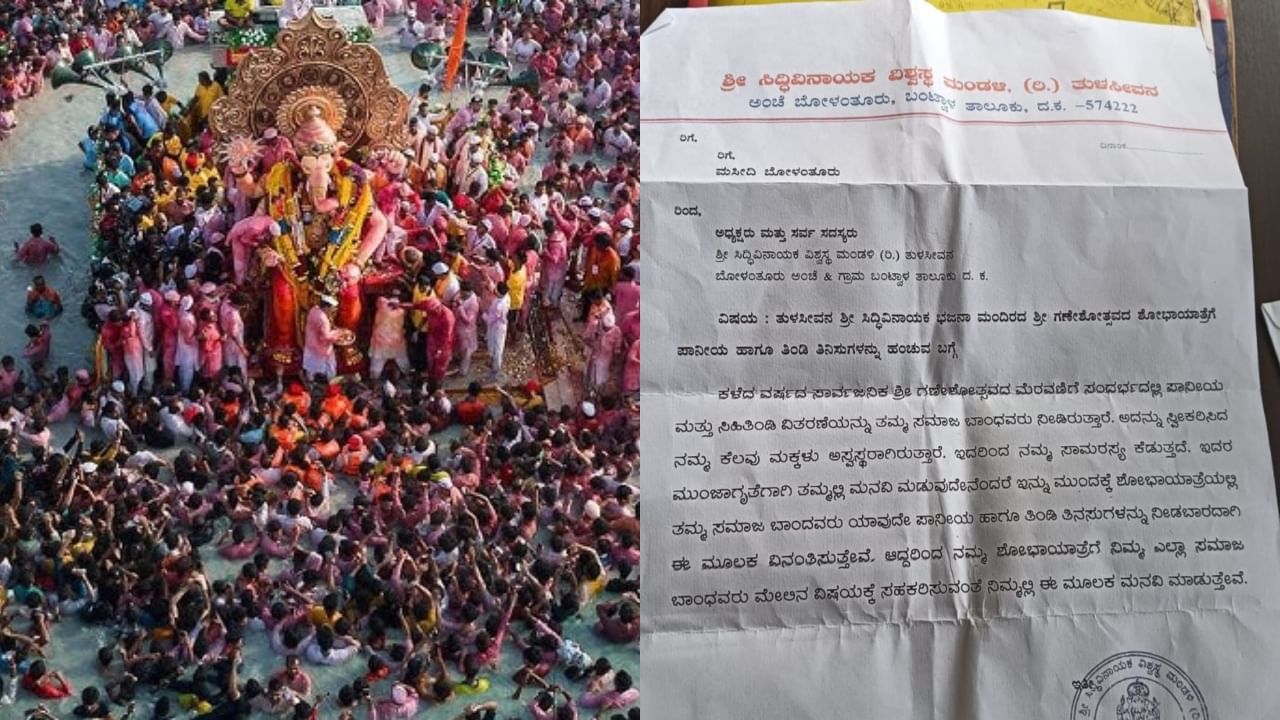 ಶ್ರೀ ಸಿದ್ಧಿವಿನಾಯಕ ವಿಶ್ವಸ್ಥ ಮಂಡಳಿ. (ರಿ.) ತುಳಸೀವನ
ಅಂಚೆ ಬೋಳಂತೂರು, ಬಂಟ್ವಾಳ ತಾಲೂಕು, ದ.ಕ. –574222
ರಿಗೆ,
ದಿನಾಂಕ
ರಿಗೆ,
ಮಸೀದಿ ಬೋಳಂತೂರು
ರಿಂದ,
ಅಧ್ಯಕ್ಷರು ಮತ್ತು ಸರ್ವ ಸದಸ್ಯರು
ಶ್ರೀ ಸಿದ್ಧಿವಿನಾಯಕ ವಿಶ್ವಸ್ಥ ಮಂಡಳಿ (ರಿ.) ತುಳಸೀವನ
ಬೋಳಂತೂರು ಅಂಚೆ & ಗ್ರಾಮ ಬಂಟ್ವಾಳ ತಾಲೂಕು ದ. ಕ.
ವಿಷಯ : ತುಳಸೀವನ ಶ್ರೀ ಸಿದ್ಧಿವಿನಾಯಕ ಭಜನಾ ಮಂದಿರದ ಶ್ರೀ ಗಣೇಶೋತ್ಸವದ ಶೋಭಾಯಾತ್ರೆಗೆ
ಪಾನೀಯ ಹಾಗೂ ತಿಂಡಿ ತಿನಿಸುಗಳನ್ನು ಹಂಚುವ ಬಗ್ಗೆ
ಕಳೆದ ವರ್ಷದ ಸಾರ್ವಜನಿಕ ಶ್ರೀ ಗಣೇಶೋತ್ಸವದ ಮೆರವಣಿಗೆ ಸಂದರ್ಭದಲ್ಲಿ ಪಾನೀಯ
ಮತ್ತು ಸಿಹಿತಿಂಡಿ ವಿತರಣೆಯನ್ನು ತಮ್ಮ ಸಮಾಜ ಬಾಂಧವರು ನೀಡಿರುತ್ತಾರೆ. ಅದನ್ನು ಸ್ವೀಕರಿಸಿದ
ನಮ್ಮ ಕೆಲವು ಮಕ್ಕಳು ಅಸ್ವಸ್ಥರಾಗಿರುತ್ತಾರೆ. ಇದರಿಂದ ನಮ್ಮ ಸಾಮರಸ್ಯ ಕೆಡುತ್ತದೆ. ಇದರ
ಮುಂಜಾಗೃತೆಗಾಗಿ ತಮ್ಮಲ್ಲಿ ಮನವಿ ಮಡುವುದೇನೆಂದರೆ ಇನ್ನು ಮುಂದಕ್ಕೆ ಶೋಭಾಯಾತ್ರೆಯಲ್ಲಿ
ತಮ್ಮ ಸಮಾಜ ಬಾಂದವರು ಯಾವುದೇ ಪಾನೀಯ ಹಾಗೂ ತಿಂಡಿ ತಿನಸುಗಳನ್ನು ನೀಡಬಾರದಾಗಿ
ಈ ಮೂಲಕ ವಿನಂತಿಸುತ್ತೇವೆ. ಆದ್ದರಿಂದ ನಮ್ಮ ಶೋಭಾಯಾತ್ರೆಗೆ ನಿಮ್ಮ ಎಲ್ಲಾ ಸಮಾಜ
ಬಾಂಧವರು ಮೇಲಿನ ವಿಷಯಕ್ಕೆ ಸಹಕರಿಸುವಂತೆ ನಿಮ್ಮಲ್ಲಿ ಈ ಮೂಲಕ ಮನವಿ ಮಾಡುತ್ತೇವೆ.
ಶ್ರೀ ಸಿದ್ಧಿವಿನಾಯಕ ವಿಶ್ವಸ್ಥ ಮಂಡಳಿ